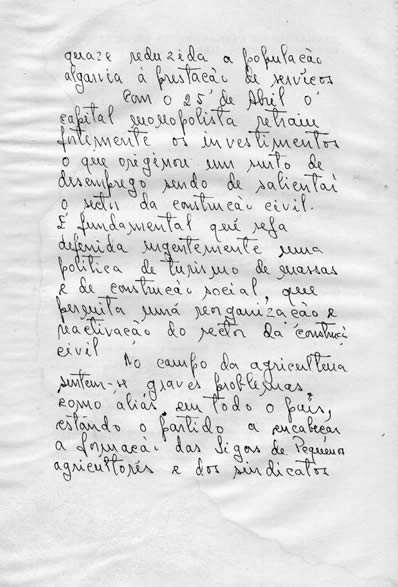 quaze reduzida a população
algarvia à prestação de serviços
Com o 25 de Abril o
capital monopolista retraiu
fortemente os investimentos
o que originou um surto de
desemprego sendo de salientar
o sector da construção civil.
É fundamental que seja
defenida urgentemente uma
política de turismo de massas
e de construção social, que
permita uma reorganização e
reactivação do sector da construçã
civil
No campo da agricultura
sentem-se graves problemas,
como aliás em todo o país,
estando o partido a encabeçar
a formação das Ligas de Pequenos
agricultores e dos sindicatos